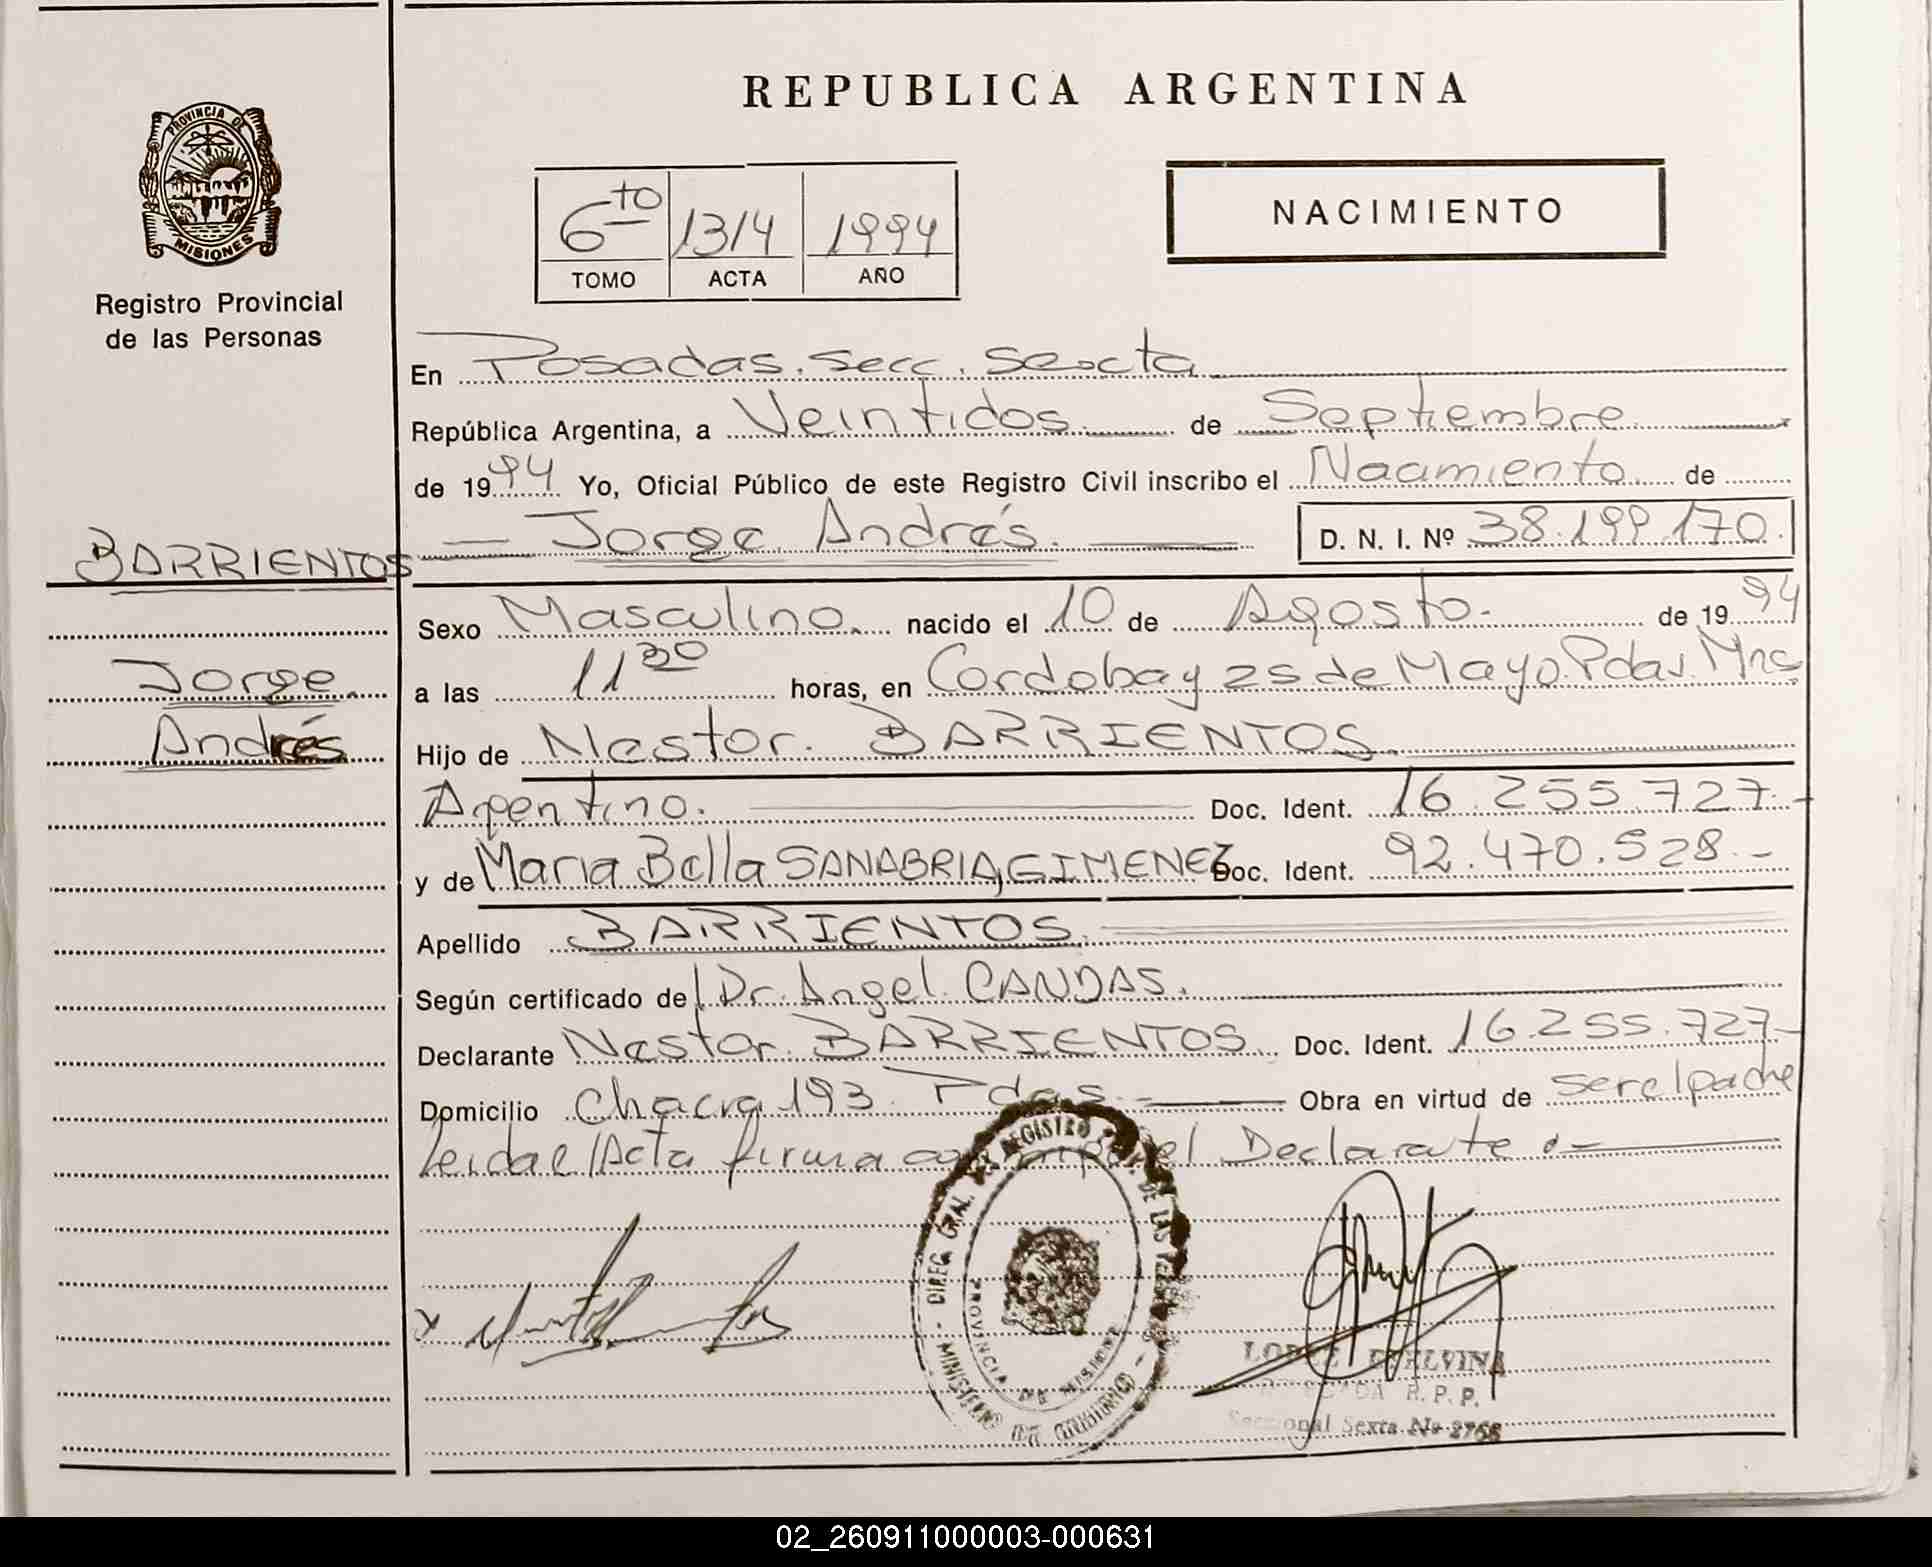 REPUBLICA ARGENTINA
PROVINCIA DE
MISIONES
Registro Provincial
de las Personas
6to 1314 1994
TOMO ACTA AÑO
NACIMIENTO
En Posadas. Secc. Sexta
República Argentina, a Veintidos de Septiembre
de 1994 Yo, Oficial Público de este Registro Civil inscribo el Nacimiento de
BARRIENTOS
Jorge Andrés. D. N. I. Nº 38.199.170.
Sexo Masculino. nacido el 10 de Agosto. de 1994
Jorge
a las 11 30 horas, en Cordoba y 25 de Mayo. Pdas. Mnes
Andrés
Hijo de Nestor. BARRIENTOS.
Argentino. Doc. Ident. 16.255.727.-
y de Maria Bella SANABRIA GIMENEZ Doc. Ident. 92.470.528.-
Apellido BARRIENTOS.
Según certificado de l Dr. Angel CANDAS.
Declarante Nestor BARRIENTOS Doc. Ident. 16.255.727-
Domicilio Chacra 193. Pdas. Obra en virtud de ser el padre
Leida el Acta firma el Declarate.-
DIREC. GRAL. DEL REGISTRO DE LAS
MINISTERIO DE GOBIERNO
PROVINCIA DE MISIONES
LOPEZ ETELVINA
R. P. P.
Seccional Sexta No 2768
02_260911000003-000631